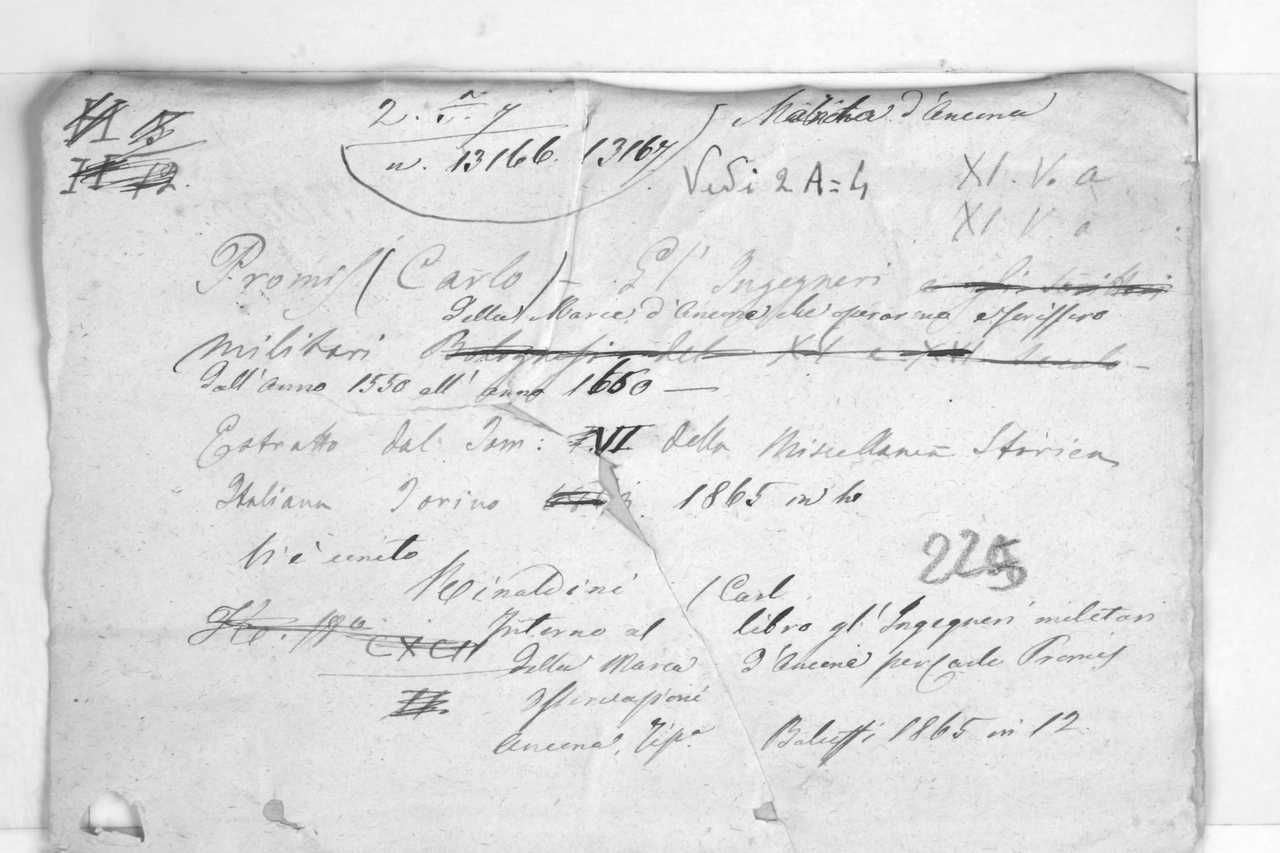 2. V. 7
Marca d'Ancona
n. 13166. 13167
Vedi 2 A=4
XI. V. a
XI V. a
Promis (Carlo) - Gl' Ingegneri e gli Scrittori
della Marca d'Ancona che operarono e scrissero
militari Bolognesi del XV e XVI secolo -
dall'anno 1550 all'anno 1650 —
Estratto dal Tom: VI della Miscellanea Storica
Italiana Torino 1865 in 4o
Vi è unito
225
Rinaldini (Carl
Intorno al libro gl'Ingegneri militari
CXCII
della Marca d'Ancona per Carlo Promis
Osservazioni
Ancona, Tip.a Baluffi 1865 in 12.